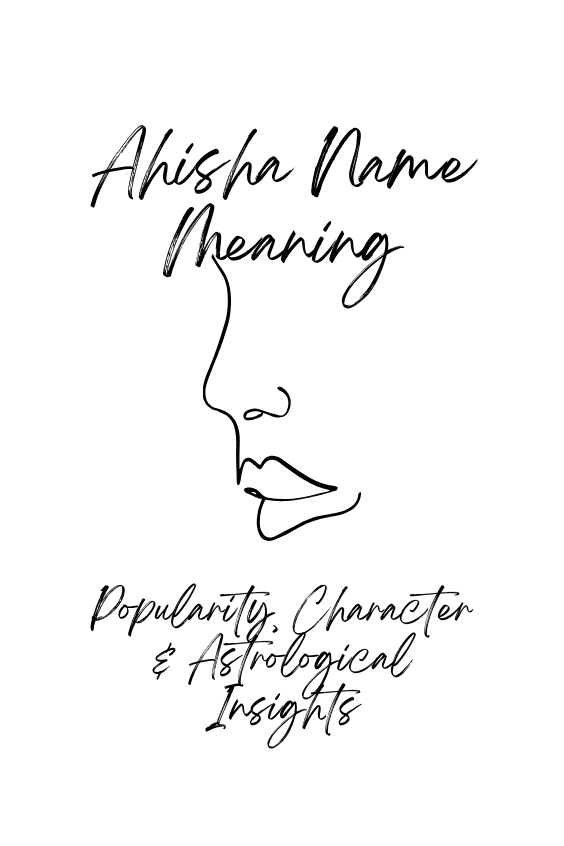 Ahisha Name
Meaning
Popularity, Character
& Astrological
Insights